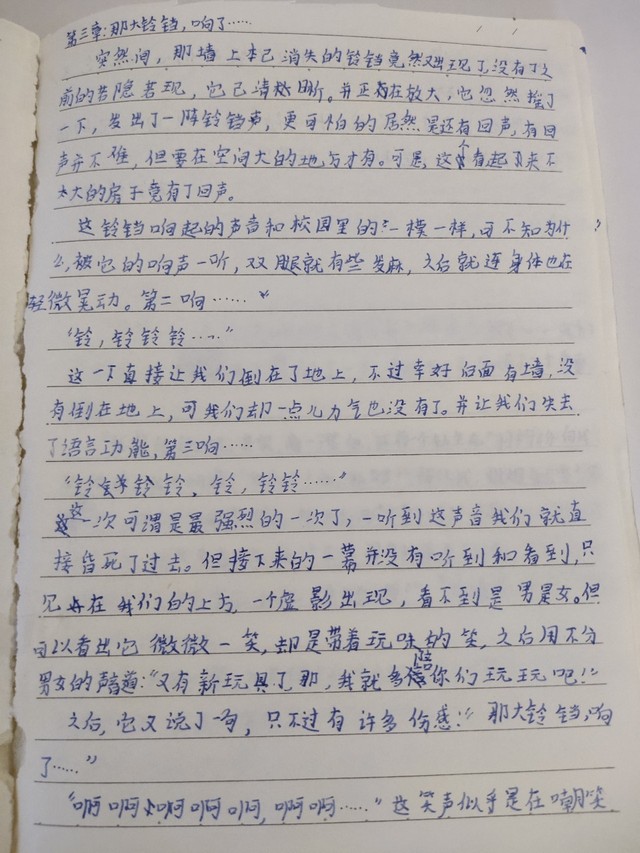 第三章:那大铃铛,响了……
突然间,那墙上本已消失的铃铛竟然又出现了,没有了之
前的若隐若现,它已清晰。并正在放大,它忽然摇了
一下,发出了一阵铃铛声,更可怕的居然是还有回声,有回
声并不难,但要在空间大的地方才有。可是,这个看起来不
大的房子竟有了回声。
这铃铛响起的声音和校园里的一模一样,可不知为什
么,被它的响声一听,双眼就有些发麻,之后就连身体也在
轻微晃动。第二响……
“铃,铃铃铃……”
这一下直接让我们倒在了地上,不过幸好后面有墙,没
有倒在地上,可我们却一点儿力气也没有了。并让我们失去
了语言功能,第三响……
“铃铃铃铃、铃,铃铃……”
这一次可谓是最强烈的一次了,一听到这声音我们就直
接昏死了过去。但接下来的一幕并没有听到和看到,只
见在我们的上方,一个虚影出现,看不到是男是女。但
可以看出它微微一笑,却是带着玩味的笑,之后用不分
男女的声音道:“又有新玩具了,那,我就多陪你们玩玩吧!”
之后,它又说了一句,只不过有许多伤感!“那大铃铛,响
了……”
“啊啊啊啊啊,啊啊……”这笑声似乎是在嘲笑